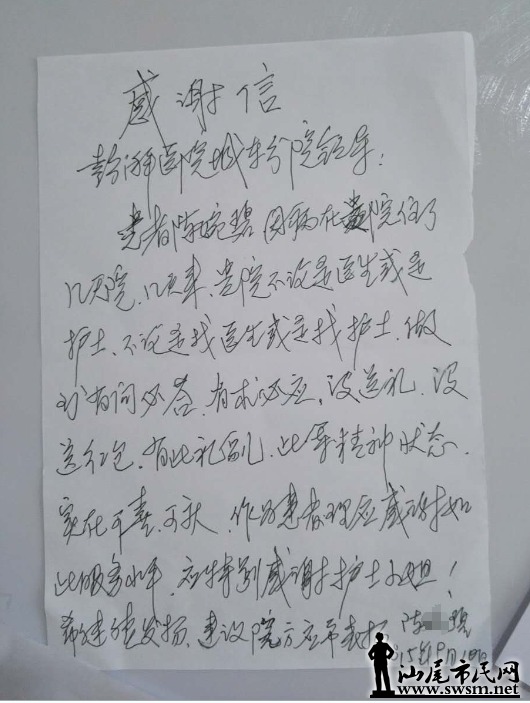 感谢信
彭湃医院城东分院领导:
患者陈婉碧因病在贵院住了
几天院,几天来,贵院不论是医生或是
护士,不论是找医生或是找护士,做
到有问必答,有求必应,没送礼,没
送红包,有此礼仪,此等精神状态,
实在可喜,可秋,作为患者理应感谢如
此服务水平,应特别感谢护士小姐!
希继续发扬,建议院方应予表扬 陈 碧
汕尾市民网
www.swsm.net